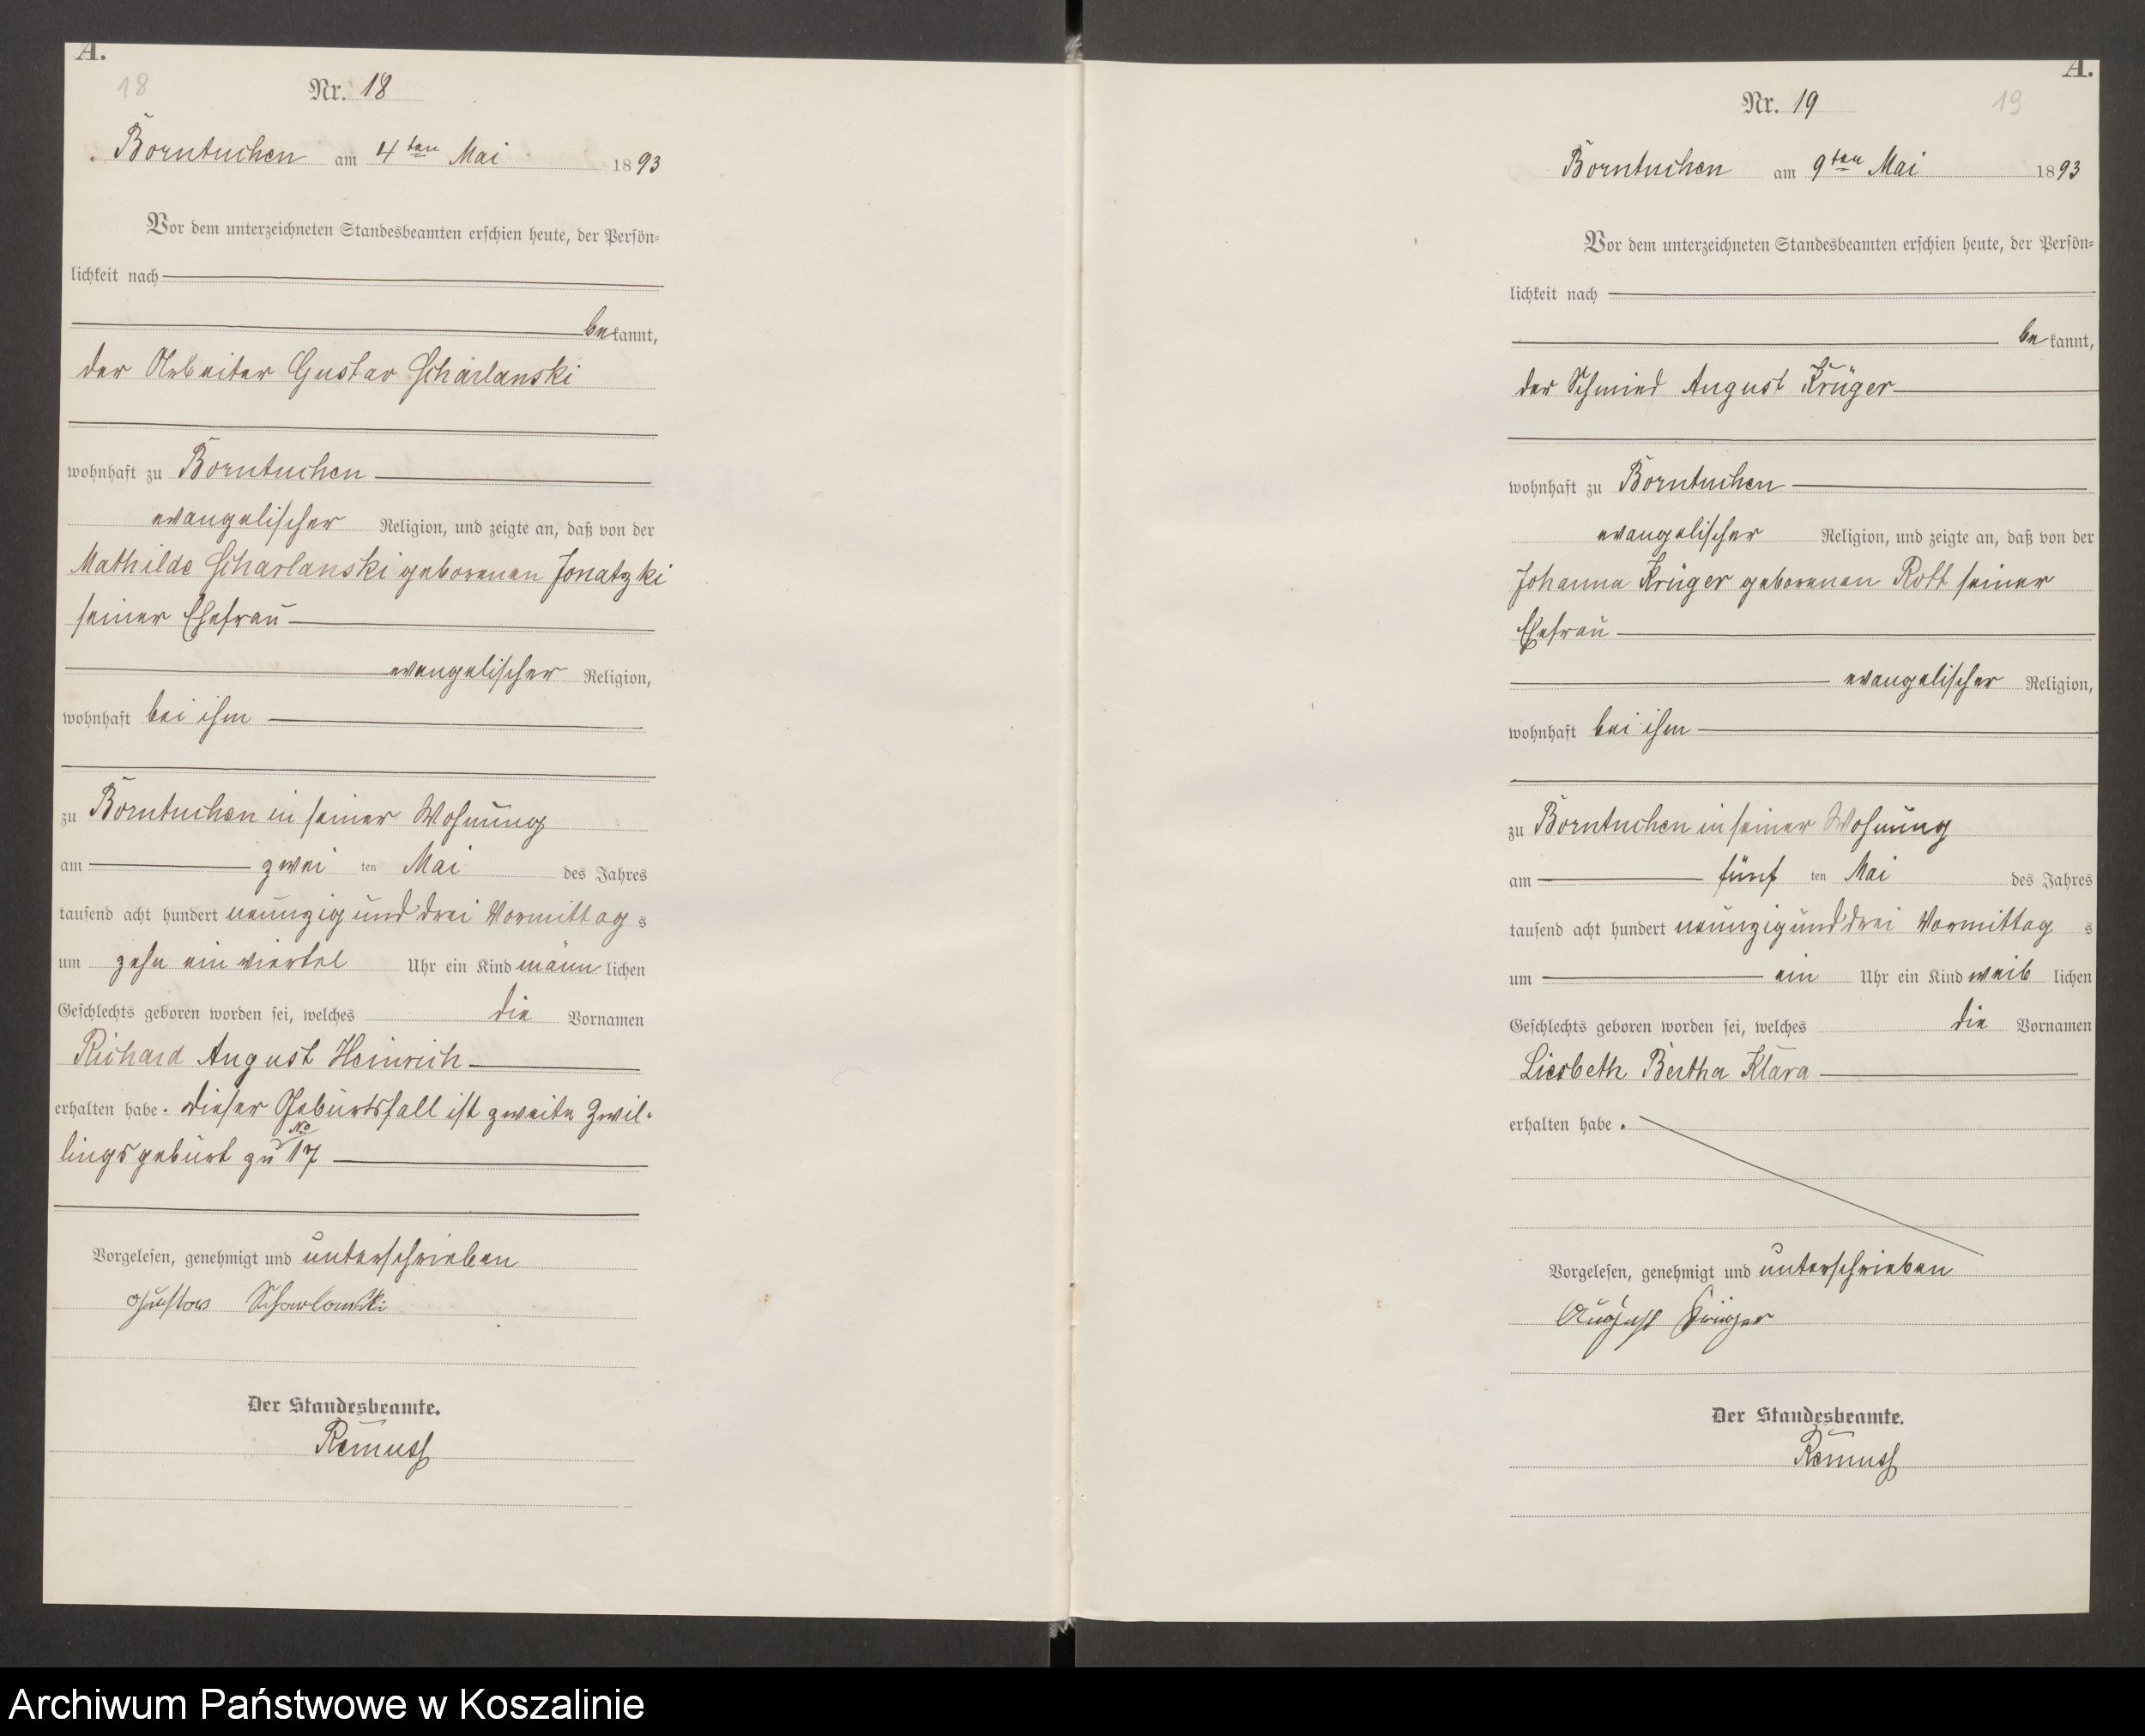 A.
18
Nr. 18
Borntuchen am 4ten Mai 1893
Vor dem unterzeichneten Standesbeamten erschien heute, der Persön-
lichkeit nach
bekannt,
der Arbeiter Gustav Scharlanski
wohnhaft zu Borntuchen
evangelischer Religion, und zeigte an, daß von der
Mathilde Scharlanski geborenen Jonatzki
seiner Ehefrau
evangelischer Religion,
wohnhaft bei ihm
zu Borntuchen in seiner Wohnung
am zwei ten Mai des Jahres
tausend acht hundert neunzig und drei Vormittags
um zehn ein viertel Uhr ein Kind männlichen
Geschlechts geboren worden sei, welches die Vornamen
Richard August Heinrich
erhalten habe. Dieser Geburtsfall ist zweite Zwil-
lingsgeburt zu No 17
Vorgelesen, genehmigt und unterschrieben
Gustav Scharlanski
Der Standesbeamte.
Remuss
A.
19
Nr. 19
Borntuchen am 9ten Mai 1893
Vor dem unterzeichneten Standesbeamten erschien heute, der Persön-
lichkeit nach
bekannt,
der Schmied August Krüger
wohnhaft zu Borntuchen
evangelischer Religion, und zeigte an, daß von der
Johanna Krüger geborenen Rott seiner
Ehefrau
evangelischer Religion,
wohnhaft bei ihm
zu Borntuchen in seiner Wohnung
am fünf ten Mai des Jahres
tausend acht hundert neunzig und drei Vormittags
um ein Uhr ein Kind weiblichen
Geschlechts geboren worden sei, welches die Vornamen
Liesbeth Bertha Klara
erhalten habe.
Vorgelesen, genehmigt und unterschrieben
August Krüger
Der Standesbeamte.
Remuss
Archiwum Państwowe w Koszalinie